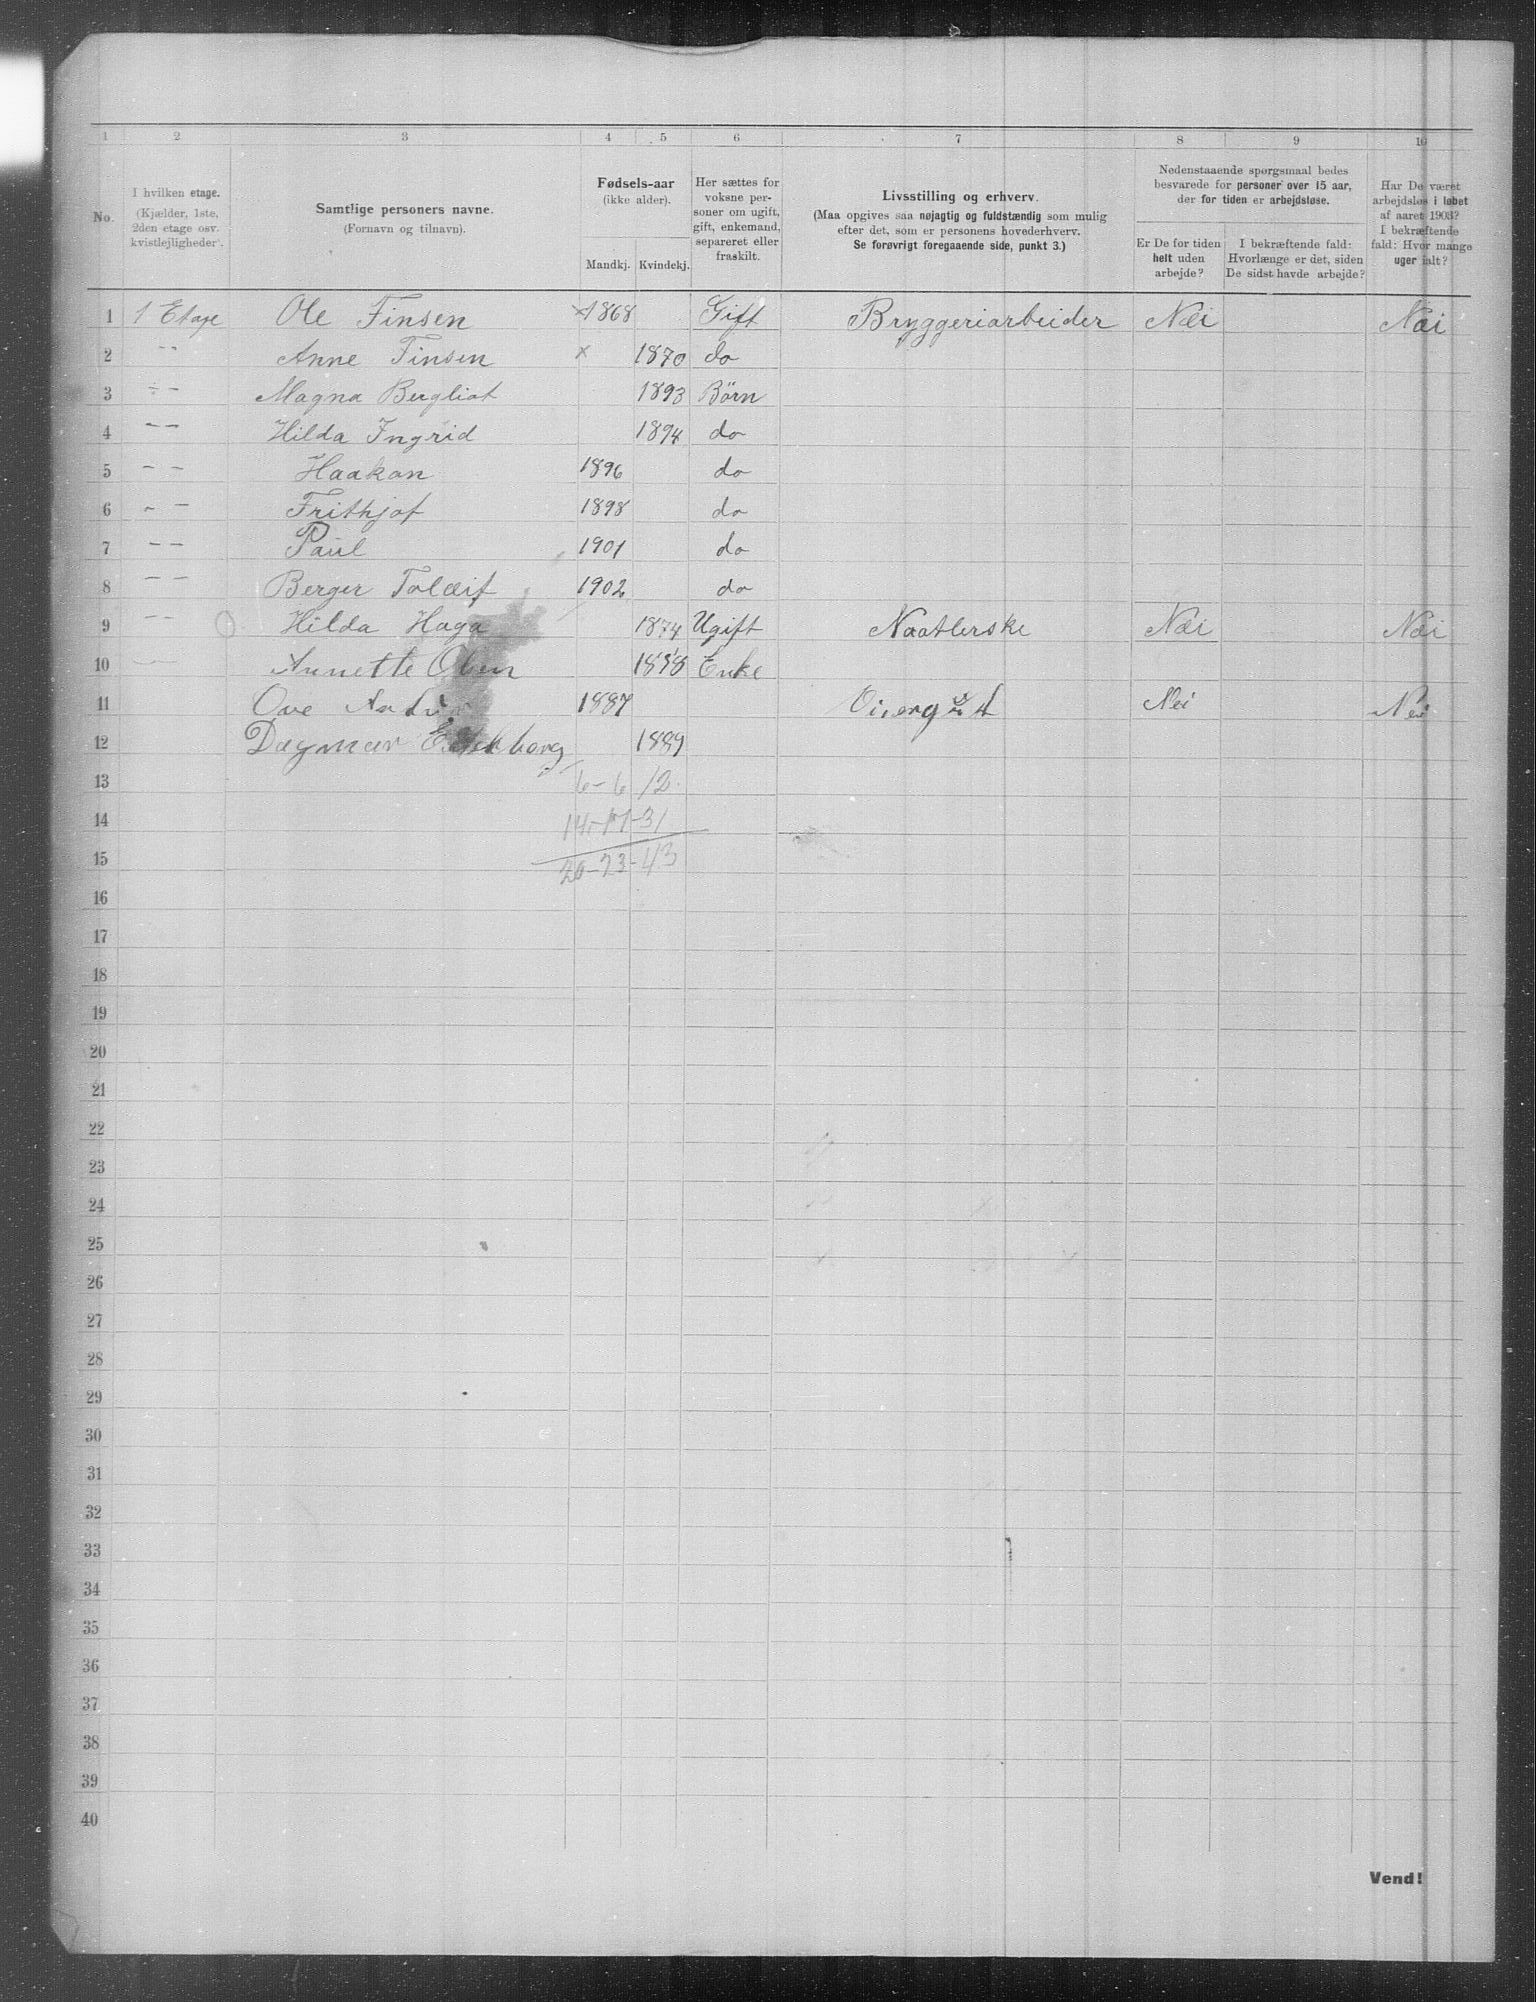 1 2 3 4 5 6 7 8 9 10
No.
I hvilken etage.
(Kjælder, 1ste,
2den etage osv.
kvistlejligheder).
Samtlige personers navne.
(Fornavn og tilnavn).
Fødsels-aar
(ikke alder).
Mandkj. Kvindekj.
Her sættes for
voksne per-
soner om ugift,
gift, enkemand,
separeret eller
fraskilt.
Livsstilling og erhverv.
(Maa opgives saa nøjagtig og fuldstændig som mulig
efter det, som er personens hovederhverv.
Se forøvrigt foregaaende side, punkt 3.)
Nedenstaaende spørgsmaal bedes
besvarede for personer over 15 aar,
der for tiden er arbejdsløse.
Er De for tiden
helt uden
arbejde?
I bekræftende fald:
Hvorlænge er det, siden
De sidst havde arbejde?
Har De været
arbejdsløs i løbet
af aaret 1903?
I bekræftende
fald: Hvor mange
uger ialt?
1 1 Etage Ole Finsen ×1868 Gift Bryggeriarbeider Nei Nei
2 - - Anne Finsen × 1870 do
3 - - Magna Bergliot 1893 Børn
4 - - Hilda Ingrid 1894 do
5 - - Haakon 1896 do
6 - - Frithjof 1898 do
7 - - Paul 1901 do
8 - - Berger Toleif 1902 do
9 - - Hilda Haga 1874 Ugift Naatlerske Nei Nei
10 Annette Olsen Enke
11 Ove 1887 Nei Nei
12 Dagmar 1889
13 6-6 12
14 14-17-31
15 20-23-43
16
17
18
19
20
21
22
23
24
25
26
27
28
29
30
31
32
33
34
35
36
37
38
39
40
Vend!